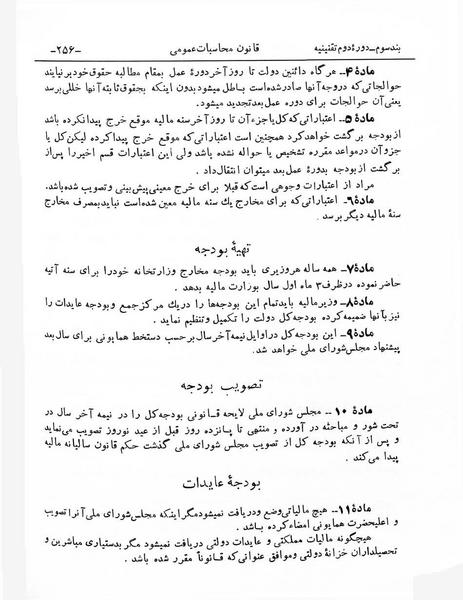 بند سوم ــ دورهٔ دوم تقنینیه
قانون محاسبات عمومی
ــ ۲۵۶ ــ
مادهٔ ۴ــ هرگاه دائنین دولت تا روز آخر دورهٔ عمل بمقام مطالبه حقوق خود برنیایند
حوالجاتی که در وجه آنها صادر شده است باطل میشود بدون اینکه بحقوق ثابته آنها خللی برسد
یعنی آن حوالجات برای دوره عمل بعد تجدید میشود.
مادهٔ ۵ــ اعتباراتی که کل یا جزء آن تا روز آخر سنه مالیه موقع خرج پیدا نکرده باشد
از بودجه برگشت خواهد کرد همچنین است اعتباراتی که موقع خرج پیدا کرده لیکن کل یا
جزو آن در مواعد مقرره تشخیص یا حواله نشده باشد ولی این اعتبارات قسم اخیر را پس از
برگشت از بودجه بدورهٔ عمل بعد میتوان انتقال داد .
مراد از اعتبارات وجوهی است که قبلا برای خرج معینی پیش بینی و تصویب شده باشد.
مادهٔ ۶ــ اعتباراتی که برای مخارج یك سنه مالیه معین شده است نباید بمصرف مخارج
سنهٔ مالیه دیگر برسد .
تهیهٔ بودجه
مادهٔ ۷ــ همه ساله هر وزیری باید بودجه مخارج وزارتخانه خود را برای سنه آتیه
حاضر نموده در ظرف ۳ ماه اول سال بوزارت مالیه بدهد .
مادهٔ ۸ــ وزیر مالیه باید تمام این بودجه‌ها را در یك مرکز جمع و بودجه عایدات را
نیز بآنها ضمیمه کرده بودجه کل دولت را تکمیل و تنظیم نماید .
مادهٔ ۹ــ این بودجه کل در اوایل نیمه آخر سال برحسب دستخط همایونی برای سال بعد
پیشنهاد مجلس شورای ملی خواهد شد.
تصویب بودجه
مادهٔ ۱۰ ــ مجلس شورای ملی لایحه قانونی بودجه کل را در نیمه آخر سال در
تحت شور و مباحثه در آورده و منتهی تا پانزده روز قبل از عید نوروز تصویب مینماید
و پس از آنکه بودجه کل از تصویب مجلس شورای ملی گذشت حکم قانون سالیانه مالیه
پیدا میکند .
بودجهٔ عایدات
مادهٔ ۱۱ــ هیچ مالیاتی وضع و دریافت نمیشود مگر اینکه مجلس شورای ملی آنرا تصویب
و اعلیحضرت همایونی امضاء کرده باشد .
هیچگونه مالیات مملکتی و عایدات دولتی دریافت نمیشود مگر بدستیاری مباشرین و
تحصیلداران خزانهٔ دولتی و موافق عنوانی که قانوناً مقرر شده باشد .